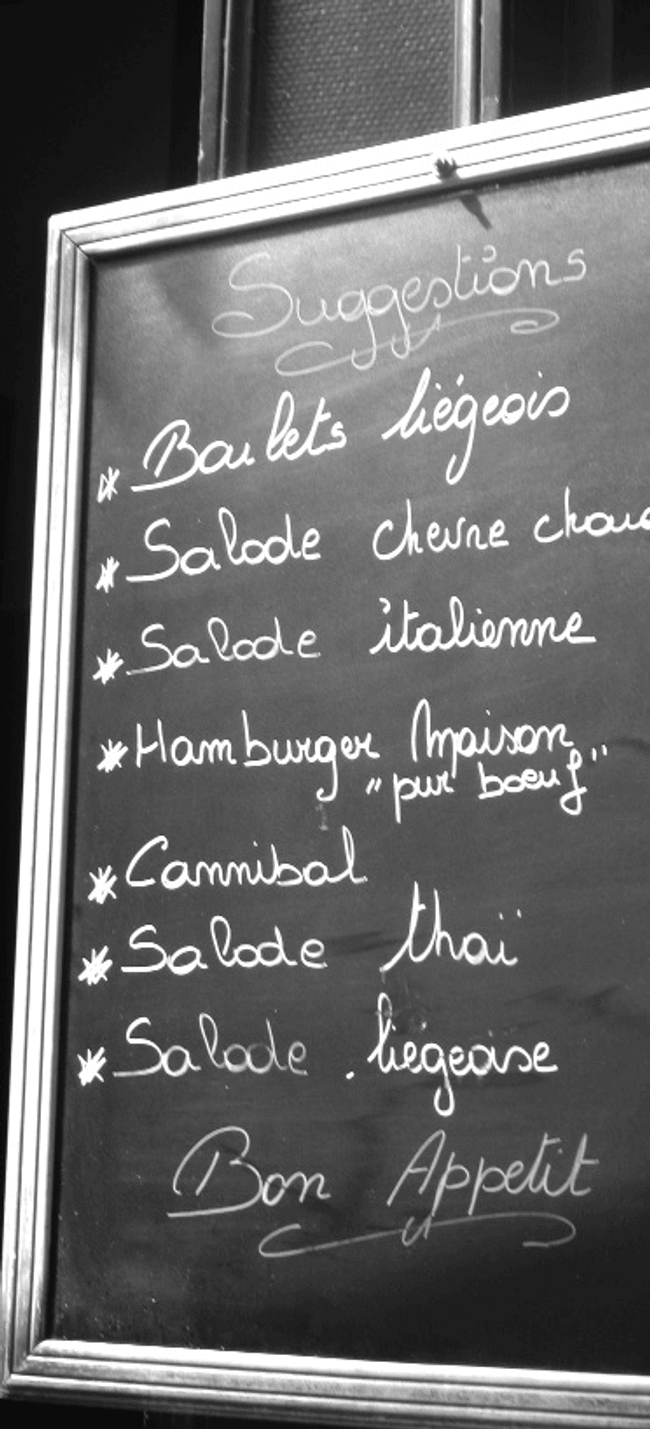 Suggestions
* Boulets liégeois
* Salade chevre chau
* Salade italienne
* Hamburger Maison
"pur bœuf"
* Cannibal
* Salade thaï
* Salade liegeoise
Bon Appetit